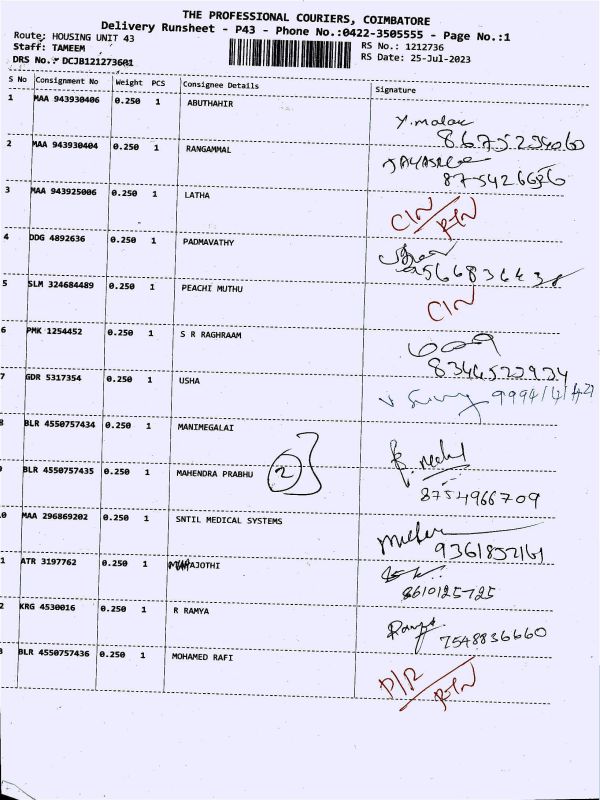 THE PROFESSIONAL COURIERS, COIMBATORE
Delivery Runsheet - P43 - Phone No.:0422-3505555 - Page No.:1
Route: HOUSING UNIT 43
Staff: TAMEEM
RS No.: 1212736
DRS No.: DCJB121273601
RS Date: 25-Jul-2023
S No Consignment No Weight PCS Consignee Details Signature
1 MAA 943930406 0.250 1 ABUTHAHIR
2 MAA 943930404 0.250 1 RANGAMMAL
JAYASREE
3 MAA 943925006 0.250 1 LATHA
C/N
RTN
4 DDG 4892636 0.250 1 PADMAVATHY
5 SLM 324684489 0.250 1 PEACHI MUTHU
C/N
6 PMK 1254452 0.250 1 S R RAGHRAAM
7 GDR 5317354 0.250 1 USHA
8 BLR 4550757434 0.250 1 MANIMEGALAI
9 BLR 4550757435 0.250 1 MAHENDRA PRABHU 2
8754966709
0 MAA 296869202 0.250 1 SNTIL MEDICAL SYSTEMS
9361852161
1 ATR 3197762 0.250 1 AJOTHI
8610125725
2 KRG 4530016 0.250 1 R RAMYA
Ramya
7548836660
3 BLR 4550757436 0.250 1 MOHAMED RAFI
D/R
RTN